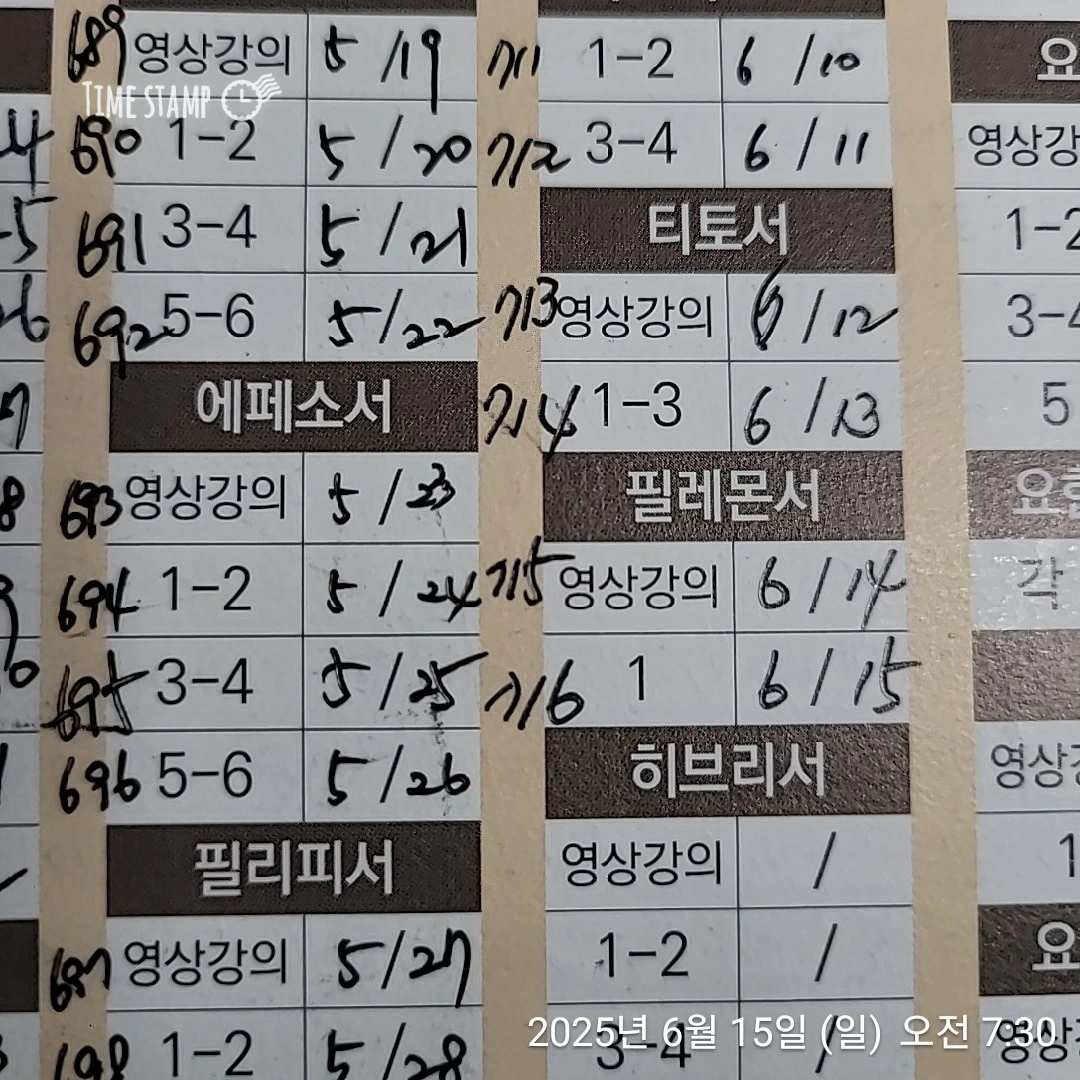 689 영상강의 5/19
TIME STAMP
690 1-2 5/20
691 3-4 5/21
692 5-6 5/22
에페소서
693 영상강의 5/23
694 1-2 5/24
695 3-4 5/25
696 5-6 5/26
필리피서
697 영상강의 5/27
698 1-2 5/28
711 1-2 6/10
712 3-4 6/11
티토서
713 영상강의 6/12
714 1-3 6/13
필레몬서
715 영상강의 6/14
716 1 6/15
히브리서
영상강의 /
1-2 /
3-4 /
요
영상강
1-2
3-4
5
각
영상강
1
요
영상
2025년 6월 15일 (일) 오전 7:30